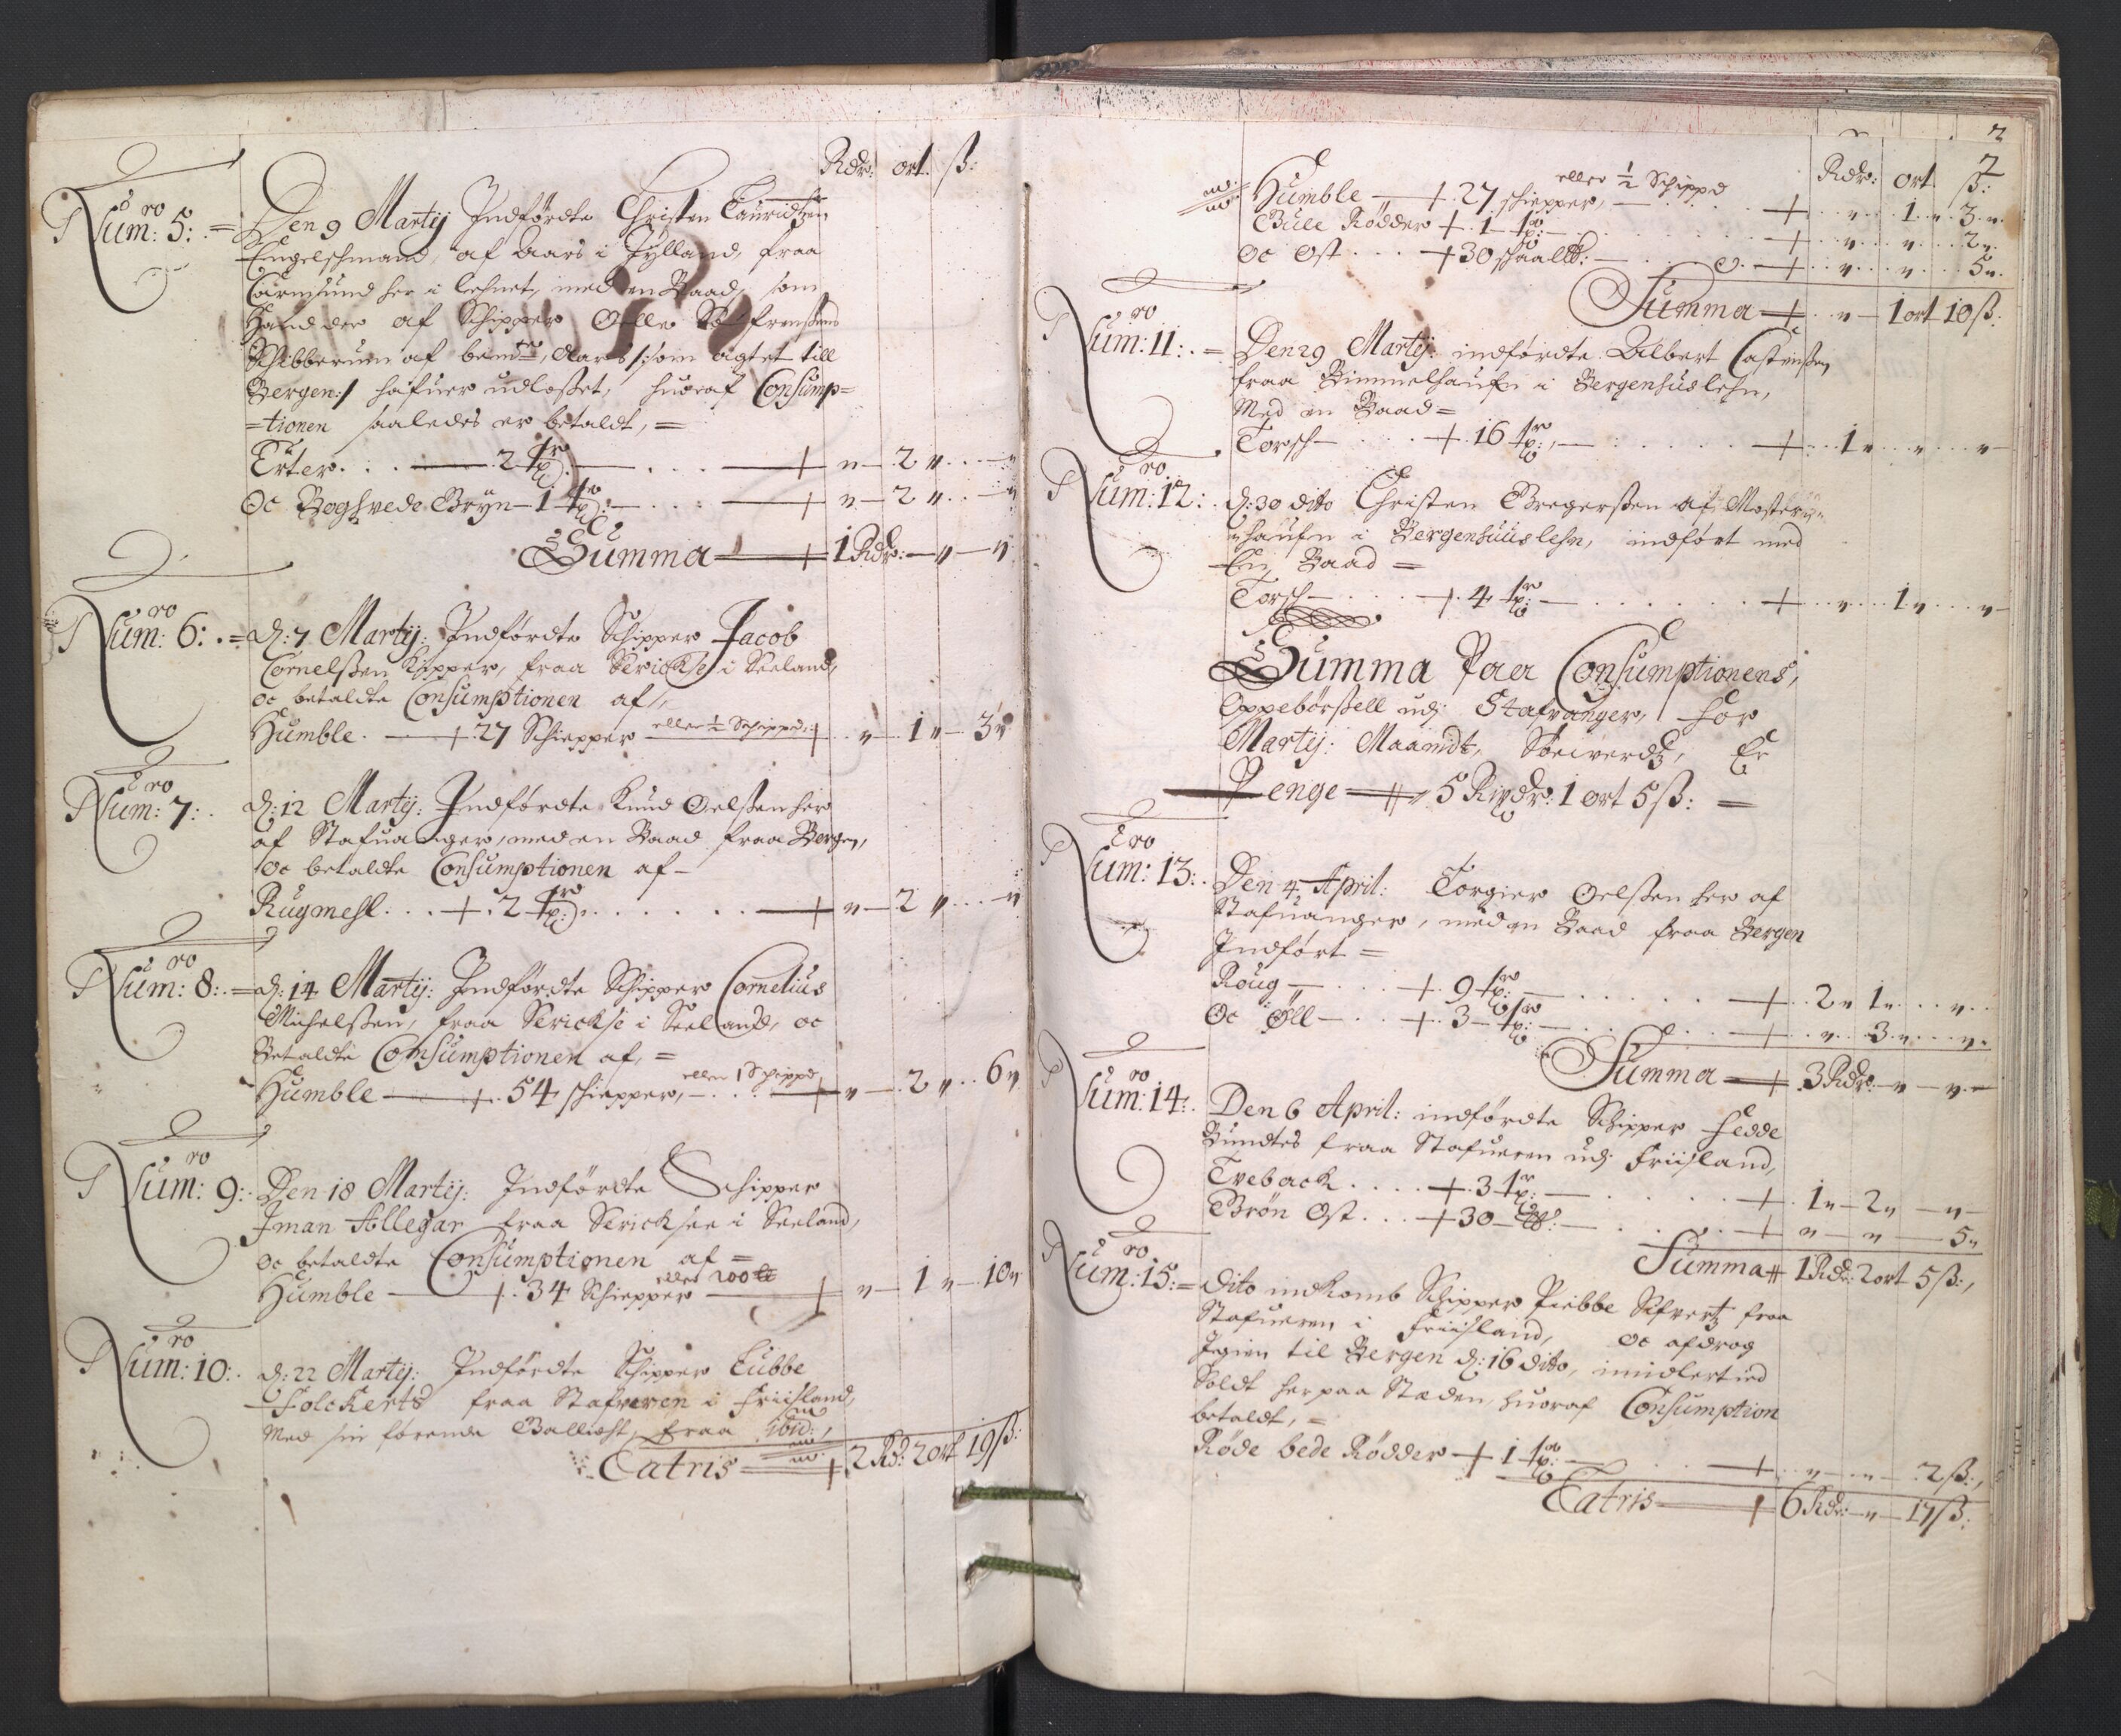 Rdr: ort. ß:
Num:ro 5: = Den 9 Martij Indførdte Christen Lauridtzen
Engelschmand, af Aars i Jylland, fraa
Carmsund her i lehnet, med en Baad, som
Hand der af Schipper Oelle
Schibberum af bemte, Aars /: som agtet till
Bergen :/ hafuer udlosset, huoraf Consump=
=tionen saaledes er betaldt, =
Erter . . . 2 tr. — + " — 2 " . . — "
Oc Boghvede Gryn — 1 tr: — + " — 2 " . . — "
Summa — + 1 Rdr: — " — "
Num:ro 6: = d: 7 Martij: Indførdte Schipper Jacob
Cornelßen Kopper, fraa Sericksé i Seeland,
oc betaldte Consumptionen af,
Humble. — + 27 Schiepper eller ½ Schippd: + . . " — 1 " — 3 "
Num:ro 7: d: 12 Martij: Indførdte Knud Oelßen her
af Stafuanger, med en Baad fraa Bergen,
oc betaldte Consumptionen af —
Rugmehl . . . + . 2 tr: . . . . . — + " — 2 " . . . — "
Num:ro 8: = d: 14 Martij: Indførdte Schipper Cornelius
Michelßen, fraa Sericksé i Seeland, oc
Betaldte Consumptionen af, =
Humble — + . 54 schiepper, eller 1 Schippd + " — . 2 " . . 6 "
Num:ro 9: Den 18 Martij: Indførdte Schipper
Iman Allegar fraa Sericksee i Seeland,
oc betaldte Consumptionen af =
Humble — + . 34 Schiepper eller 200 lb — + " — 1 " — 10 "
Num:ro 10: d: 22 Martij: Indførdte Schipper Lubbe
Folckerts fraa Stafveren i Friisland,
Med sin førende Ballast, fraa ibid:,
Latris — + 2 Rd: 2 ort 19 ß:
2
Rdr: ort ß:
Humble — + 27 schiepper, eller ½ Schippd — + . . " . . 1 . " . 3 . "
Gule Rødder + . 1 tr: — + . . " . . " . . . 2 "
Oc Ost . . . + 30 schaallb: — + . . " . . . " . . . 5 "
Summa — + . . " — 1 ort 10 ß:
Num:ro 11: = Den 29 Martij: indførdte Albert Castenßen
fraa Bimmelhaufn i Bergenhuslehn,
Med en Baad =
Torsch — . . . + . 16 tr:, — . . . . . + . . 1 " . . " . . "
Num:ro 12: d: 30 dito Christen Gregerßen af Moster
haufn i Bergenhuuslehn, indført med
En Baad =
Torsch — . . . + . 4 tr: — . . . . . + . . " . . . 1 " . . . "
Summa Paa Consumptionens,
Oppebørßell udj Stafvanger, for
Martij: Maanidt, Er
Penge — 5 Rixdr: 1 ort 5 ß: =
Num:ro 13: Den 4 April: Torgier Oelßen her af
Stafuanger, med en Baad fraa Bergen
Indført =
Roug — . . . + . 9 tr: — . . . . . + . . 2 " 1 " . . . " . .
Oc Øll — . . + . 3 — tr: — . . . + . . " . . 3 . " . . . "
Summa — + 3 Rdr: — " — " —
Num:ro 14: Den 6 April: indførdte Schipper Fedde
Bundtes fraa Stafueren udj Friisland,
Tveback . . . . + . 3 tr: — . . . . + . 1 " — 2 " — " —
Grøn Ost . . . + 30 — lb: — . . . + " — " — 5 "
Summa + 1 Rdr: 2 ort 5 ß:,
Num:ro 15: = Dito indkomb Schipper Piebbe Sifvertz fraa
Stafueren i Friisland, oc afdrog
Igien til Bergen d: 16 dito, imidlertied
Soldt her paa Staden, huoraf Consumption
betaldt, =
Røde bede Rødder — + 1 tr: — . . — + . . " — . . " — . 2 ß:,
Latris — + 6 Rdr: — " — 17 ß: